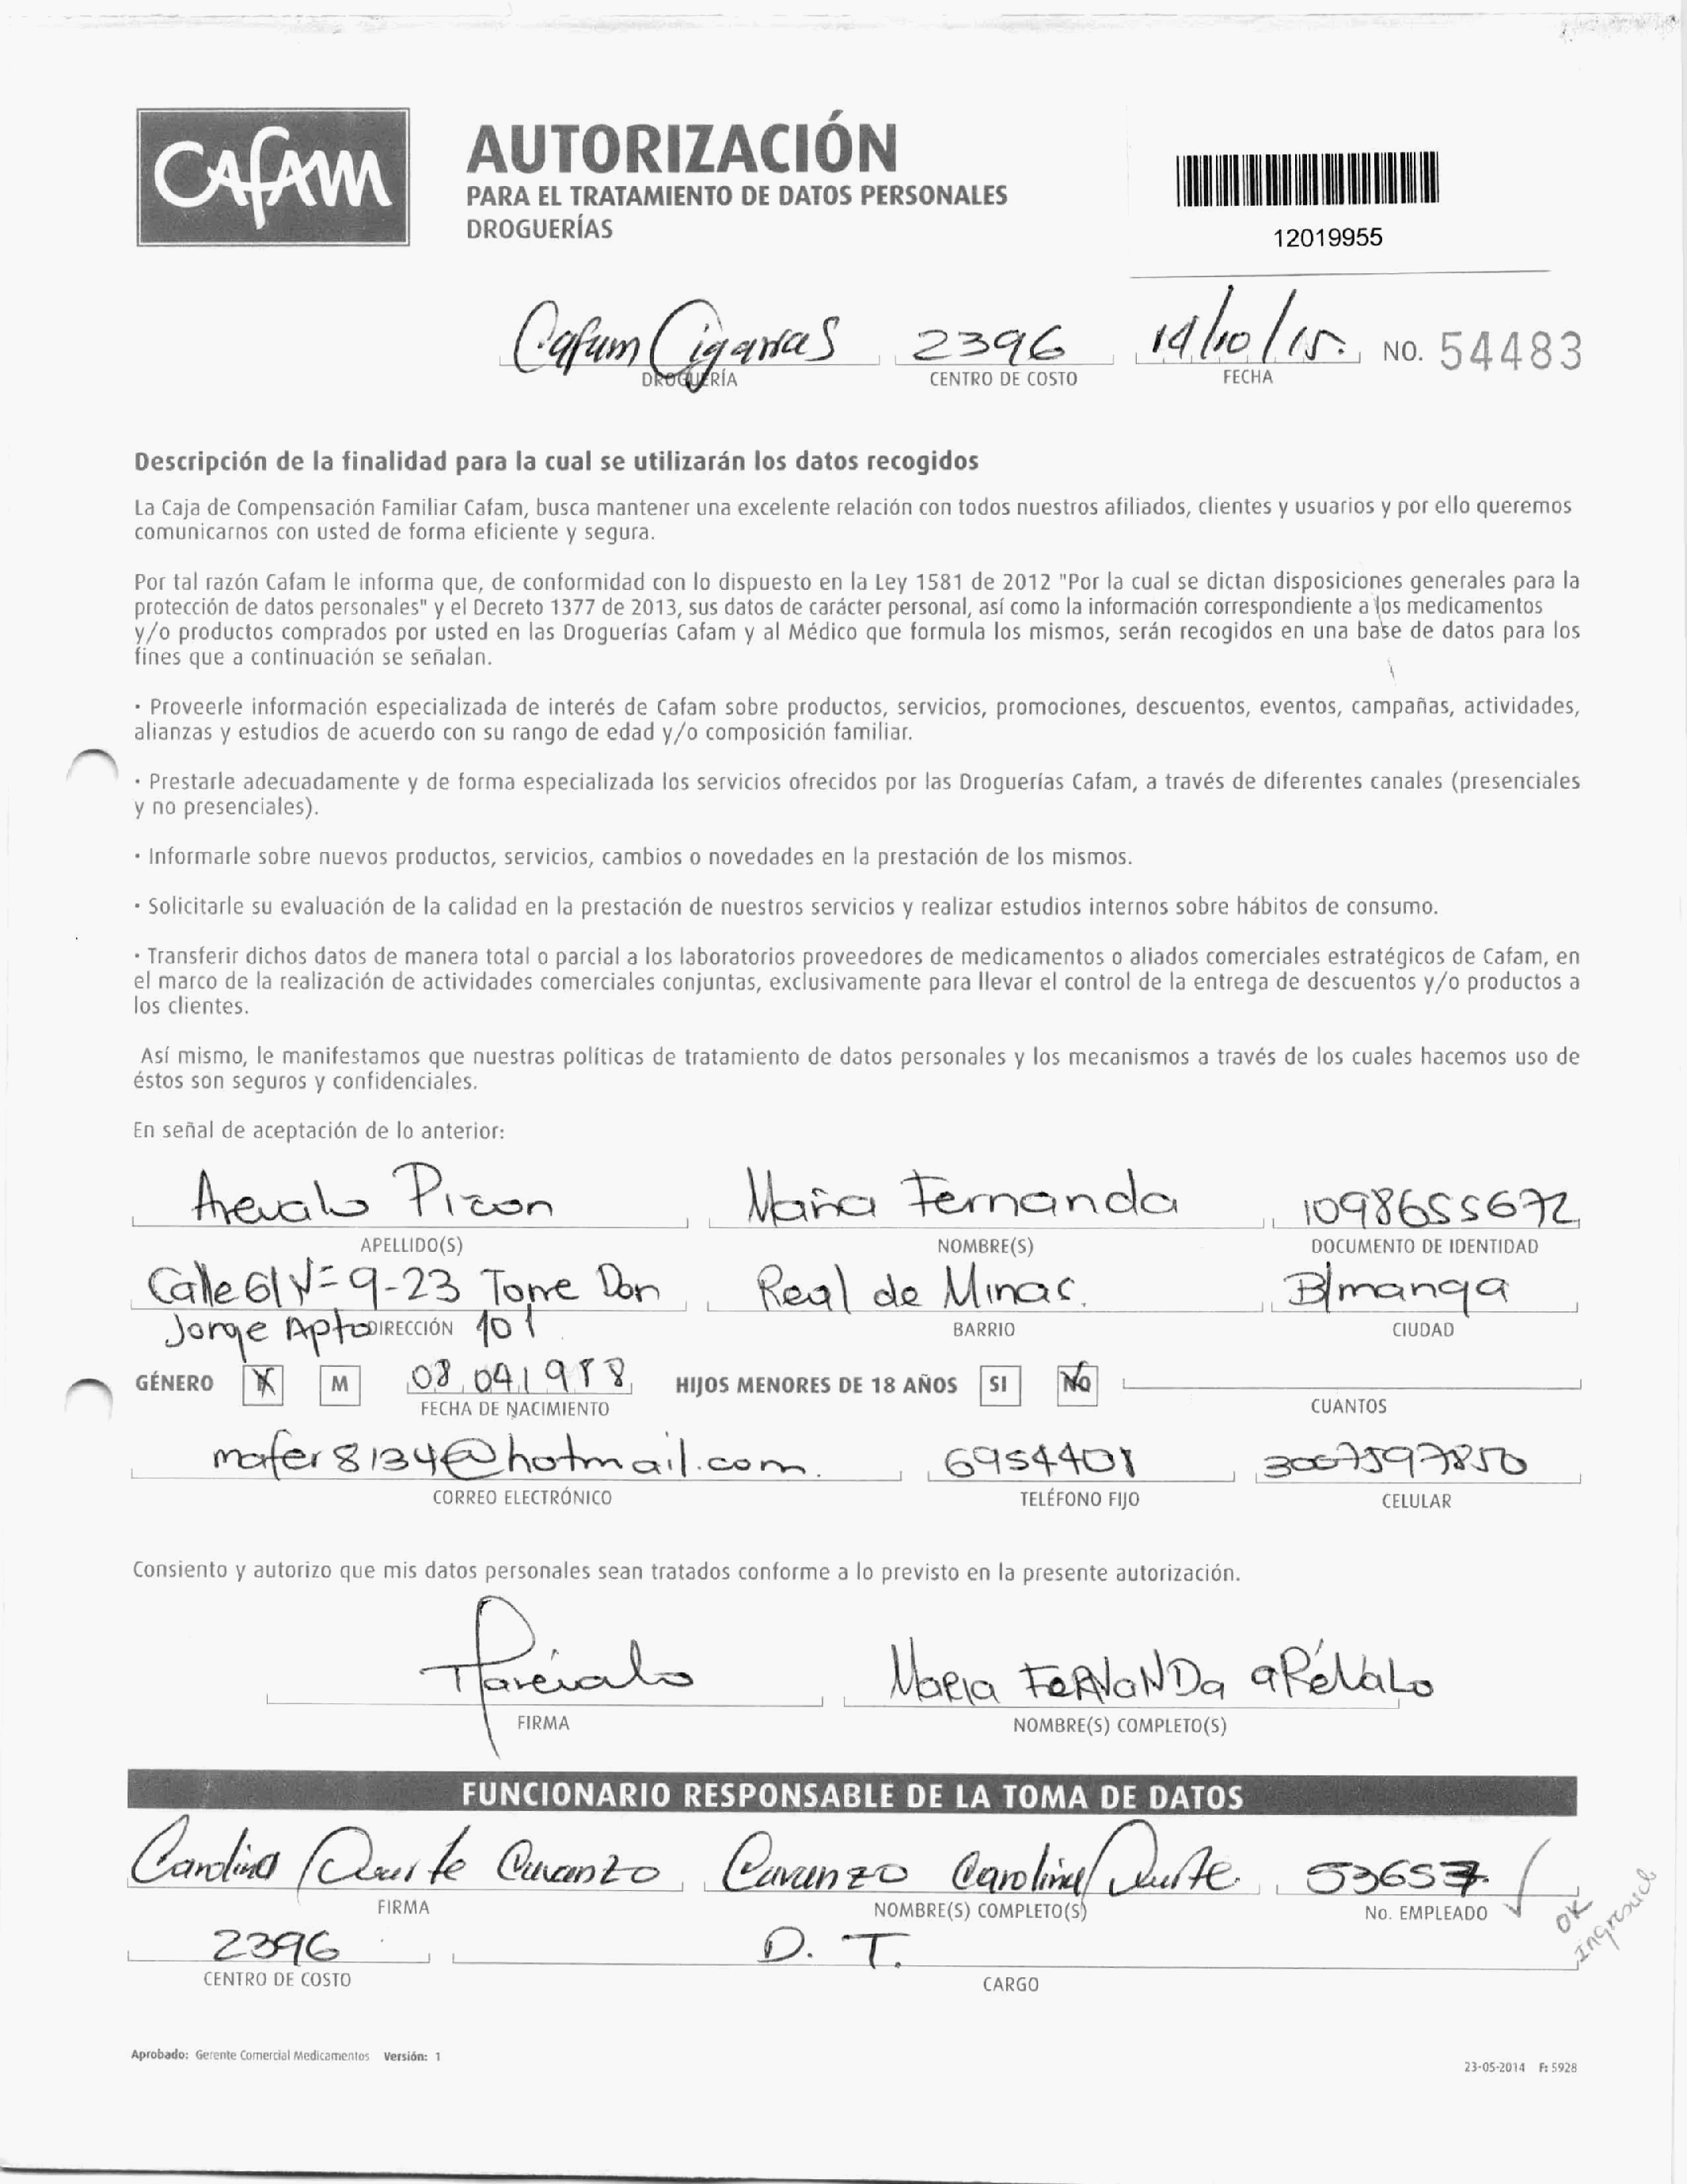 CAFAM
AUTORIZACIÓN
PARA EL TRATAMIENTO DE DATOS PERSONALES
DROGUERÍAS
12019955
Cafam Cigarras 2396 14/10/15. NO. 54483
DROGUERÍA CENTRO DE COSTO FECHA
Descripción de la finalidad para la cual se utilizarán los datos recogidos
La Caja de Compensación Familiar Cafam, busca mantener una excelente relación con todos nuestros afiliados, clientes y usuarios y por ello queremos
comunicarnos con usted de forma eficiente y segura.
Por tal razón Cafam le informa que, de conformidad con lo dispuesto en la Ley 1581 de 2012 "Por la cual se dictan disposiciones generales para la
protección de datos personales" y el Decreto 1377 de 2013, sus datos de carácter personal, así como la información correspondiente a los medicamentos
y/o productos comprados por usted en las Droguerías Cafam y al Médico que formula los mismos, serán recogidos en una base de datos para los
fines que a continuación se señalan.
· Proveerle información especializada de interés de Cafam sobre productos, servicios, promociones, descuentos, eventos, campañas, actividades,
alianzas y estudios de acuerdo con su rango de edad y/o composición familiar.
· Prestarle adecuadamente y de forma especializada los servicios ofrecidos por las Droguerías Cafam, a través de diferentes canales (presenciales
y no presenciales).
· Informarle sobre nuevos productos, servicios, cambios o novedades en la prestación de los mismos.
· Solicitarle su evaluación de la calidad en la prestación de nuestros servicios y realizar estudios internos sobre hábitos de consumo.
· Transferir dichos datos de manera total o parcial a los laboratorios proveedores de medicamentos o aliados comerciales estratégicos de Cafam, en
el marco de la realización de actividades comerciales conjuntas, exclusivamente para llevar el control de la entrega de descuentos y/o productos a
los clientes.
Así mismo, le manifestamos que nuestras políticas de tratamiento de datos personales y los mecanismos a través de los cuales hacemos uso de
éstos son seguros y confidenciales.
En señal de aceptación de lo anterior:
Arevalo Pizon Maria Fernanda 1098655672
APELLIDO(S) NOMBRE(S) DOCUMENTO DE IDENTIDAD
Calle 61 N= 9-23 Torre Don Real de Minas. B/manga
Jorge Apto 101
DIRECCIÓN BARRIO CIUDAD
GÉNERO X M 08 04 1988 HIJOS MENORES DE 18 AÑOS SI NO
FECHA DE NACIMIENTO CUANTOS
mafer8134@hotmail.com. 6954401 3007597850
CORREO ELECTRÓNICO TELÉFONO FIJO CELULAR
Consiento y autorizo que mis datos personales sean tratados conforme a lo previsto en la presente autorización.
MaRIa FeRNaNDa aRéVaLo
FIRMA NOMBRE(S) COMPLETO(S)
FUNCIONARIO RESPONSABLE DE LA TOMA DE DATOS
Carolina Duarte Caranzo Caranzo Carolina Duarte. 53657
FIRMA NOMBRE(S) COMPLETO(S) No. EMPLEADO
OK
2396 D. T.
CENTRO DE COSTO CARGO
Aprobado: Gerente Comercial Medicamentos Versión: 1
23-05-2014 F: 5928